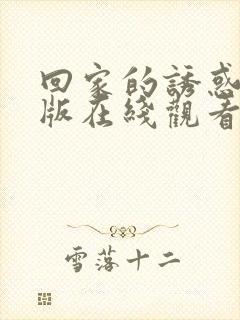 回家的誘惑
版在綫觀看
雪落十二